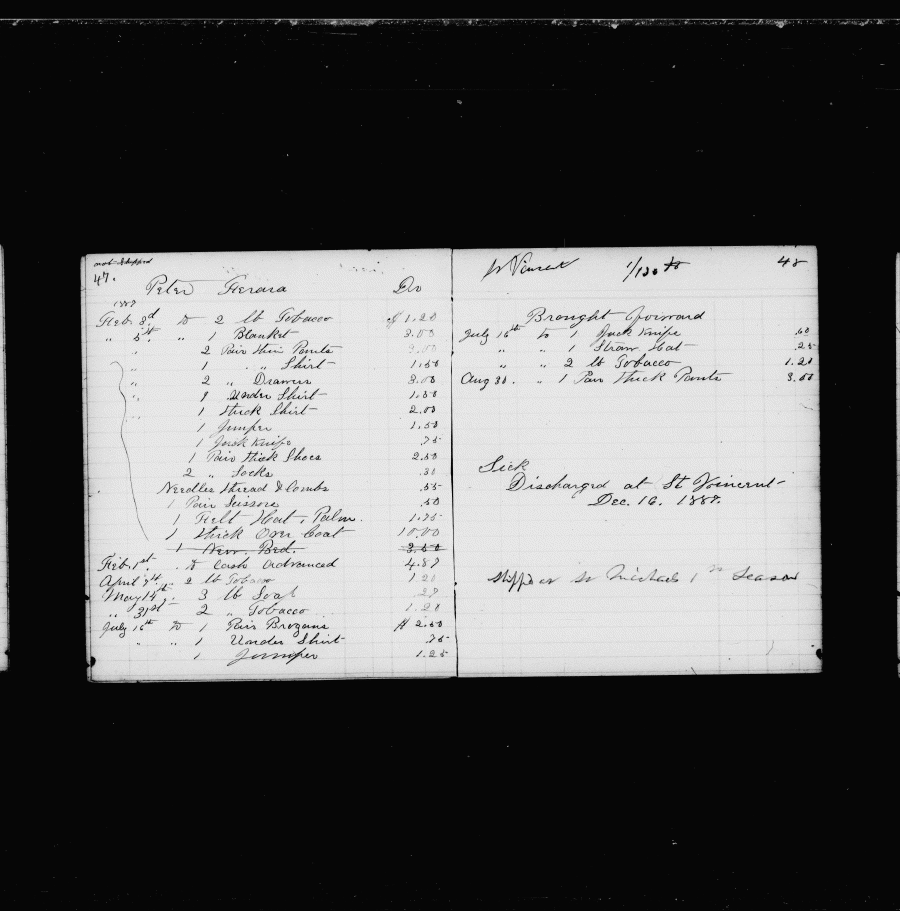 not shipped
47.
Peter Ferara Dr
1887
Feb. 3d to 2 lb Tobacco $1.20
" 5th " " 1 Blanket 3.00
" 2 Pair thin Pants 3.00
" 1 " " Shirt 1.50
" 2 " Drawers 3.00
" 1 Under Shirt 1.50
" 1 thick Shirt 2.00
1 Jumper 1.50
1 Jack Knife .75
1 Pair thick Shoes 2.50
2 " Socks .30
Needles thread & combs .55
1 Pair Scissors .50
1 Felt Hat, Palm. 1.75
1 thick Over Coat 10.00
1 New. Bed. 3.50
Feb. 1st. to Cash advanced 4.87
April 7th " 2 lb Tobacco 1.20
May 15th. 3 lb Soap .27
" 31st 2 " Tobacco 1.20
July 16th to 1 Pair Brogans $2.50
" " 1 Under Shirt .75
1 Jumper 1.25
St Vincent 1/130 to 48
Brought forward
July 16th to 1 Jack Knife .60
" " 1 Straw Hat .25
" " 2 lb Tobacco 1.20
Aug 30. " 1 Pair thick Pants 3.00
Sick
Discharged at St Vincent
Dec. 16. 1887.
Shipped at St Michaels 1 Season